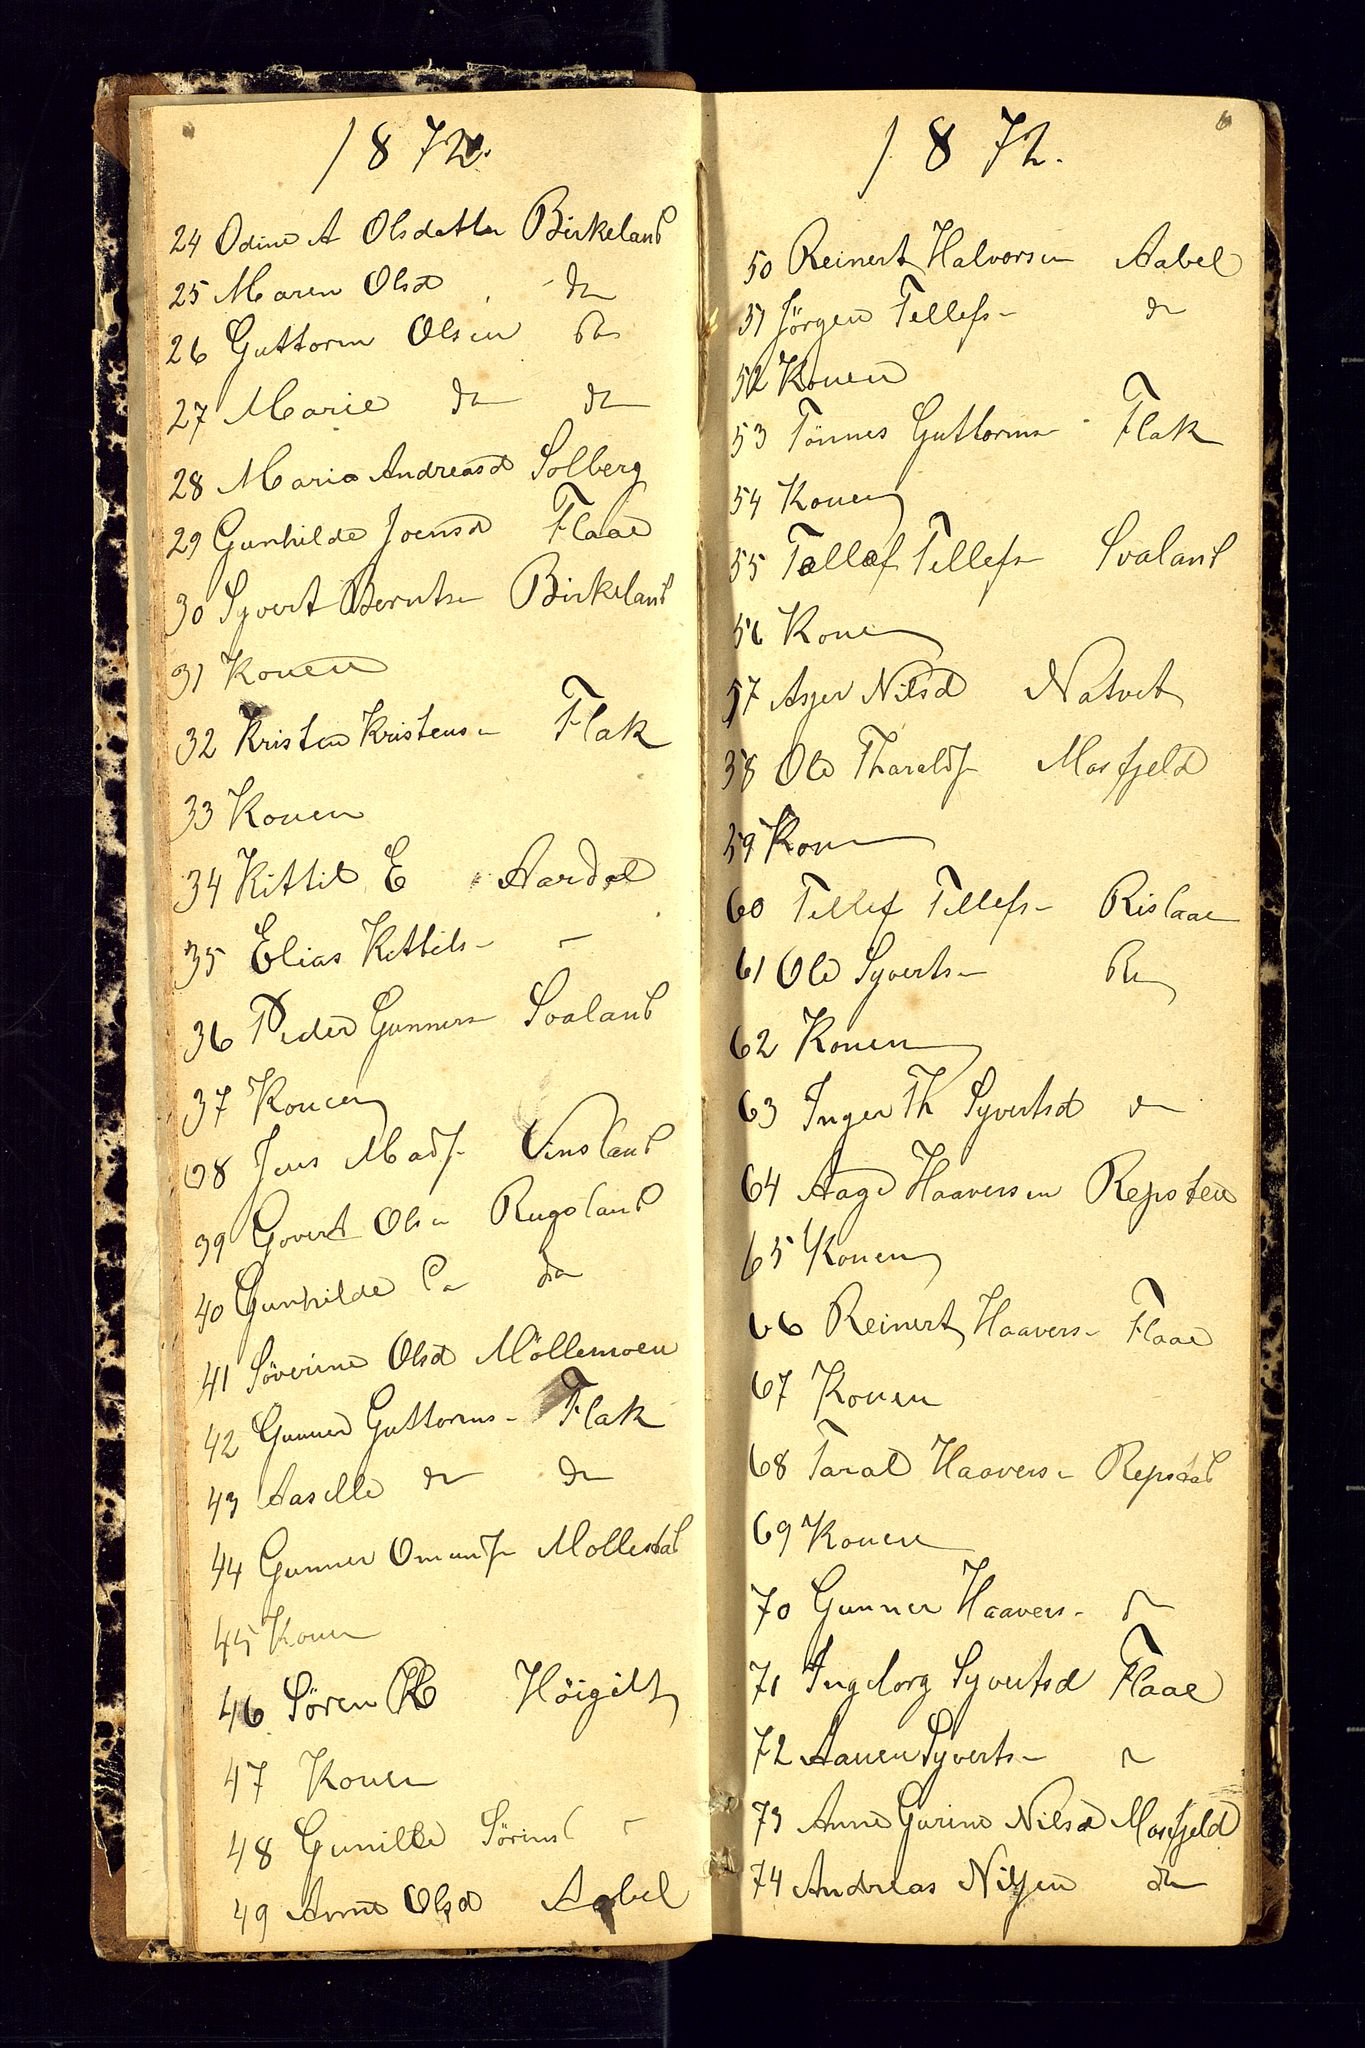 1872.
24 Odine A Olsdatter Birkeland
25 Maren Olsd do
26 Guttorm Olsen do
27 Marie do do
28 Maria Andreasd Solberg
29 Gunhilde Joensd Flaae
30 Syvert Berntsn Birkeland
31 Konen
32 Kristen Kristensn Flak
33 Konen
34 Kittil E Aardal
35 Elias Kittils- -
36 Peder Gunnersn Svaland
37 Konen
38 Jens Mads- Vinsland
39 Govert Olsn Rugsland
40 Gunhilde do
41 Söverine Olsd Möllemoen
42 Gunner Guttorms- Flak
43 Aaselle do do
44 Gunner Omunds- Mollestad
45 Konen
46 Sören Höigilt
47 Konen
48 Gunilde Sörensd -
49 Anne Olsd Aabel
6
1872.
50 Reinert Halvorsen Aabel
51 Jörgen Tellefs- do
52 Konen
53 Tönnes Guttormsn Flak
54 Konen
55 Tellef Tellefsn Svaland
56 Konen
57 Asjer Nilsd Natvet
58 Ole Tharalds- Mosfjeld
59 Konen
60 Tellef Tellefs- Rislaae
61 Ole Syverts- Rn
62 Konen
63 Inger Th Syvertsd do
64 Aage Haaversen Repsten
65 Konen
66 Reinert Haavers- Flaae
67 Konen
68 Taral Haaversn Repsdal
69 Konen
70 Gunner Haavers- do
71 Ingeborg Syvertsd Flaae
72 Aanen Syverts- do
73 Anne Gurine Nilsd Mosfjeld
74 Andreas Nilsen do